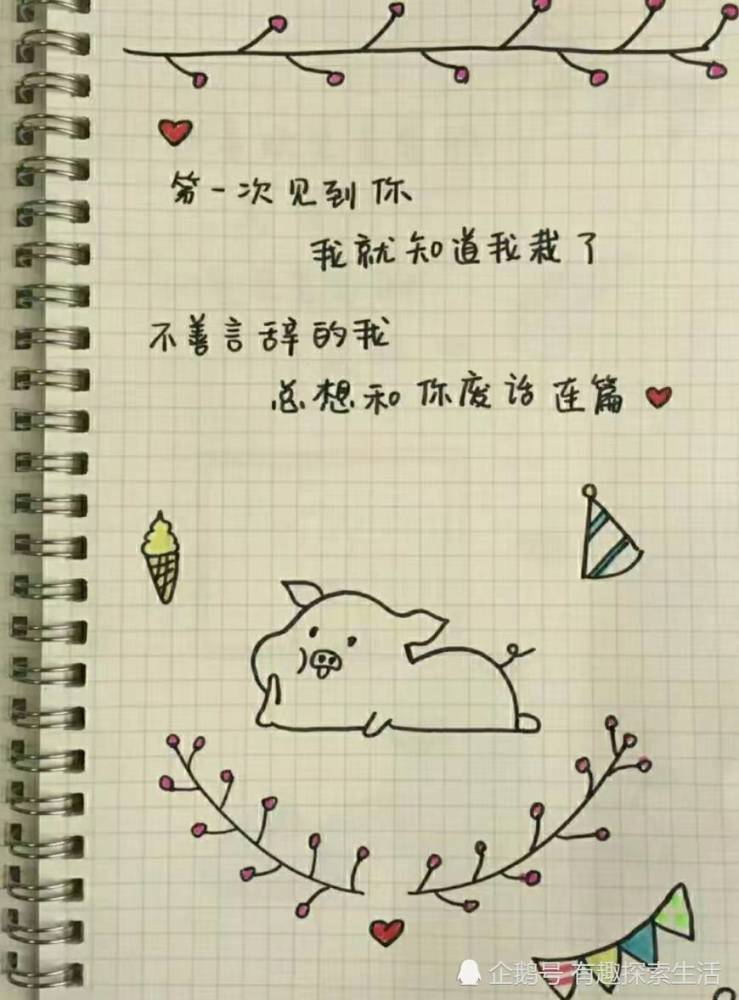 第一次见到你
我就知道我栽了
不善言辞的我
总想和你废话连篇
企鹅号 有趣探索生活